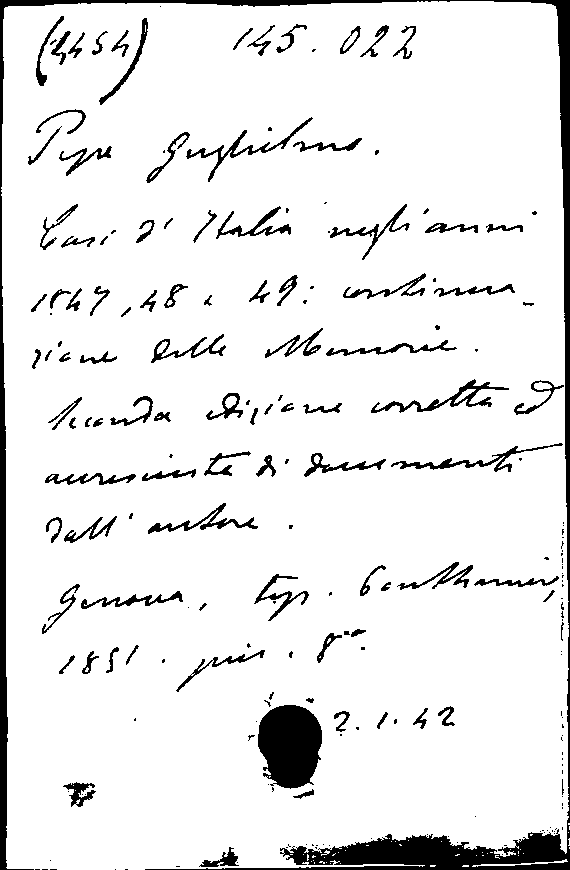 (4454) 145.022
Pepe Guglielmo.
Casi d'Italia negli anni
1847, 48 e 49: continua-
zione delle Memorie.
Seconda edizione corretta ed
accresciuta di documenti
dall'autore.
Genova, tip. Ponthenier,
1851. pic. 8°.
2.1.42